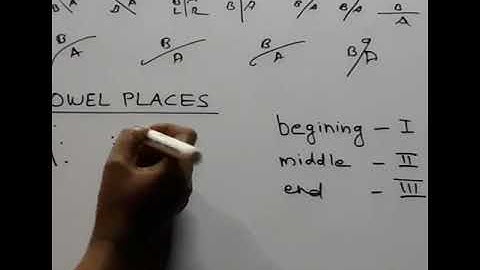 B A B A B L A R B A B A B A B A
B A B A B A B D
OWEL PLACES
begining - I
middle - II
end - III